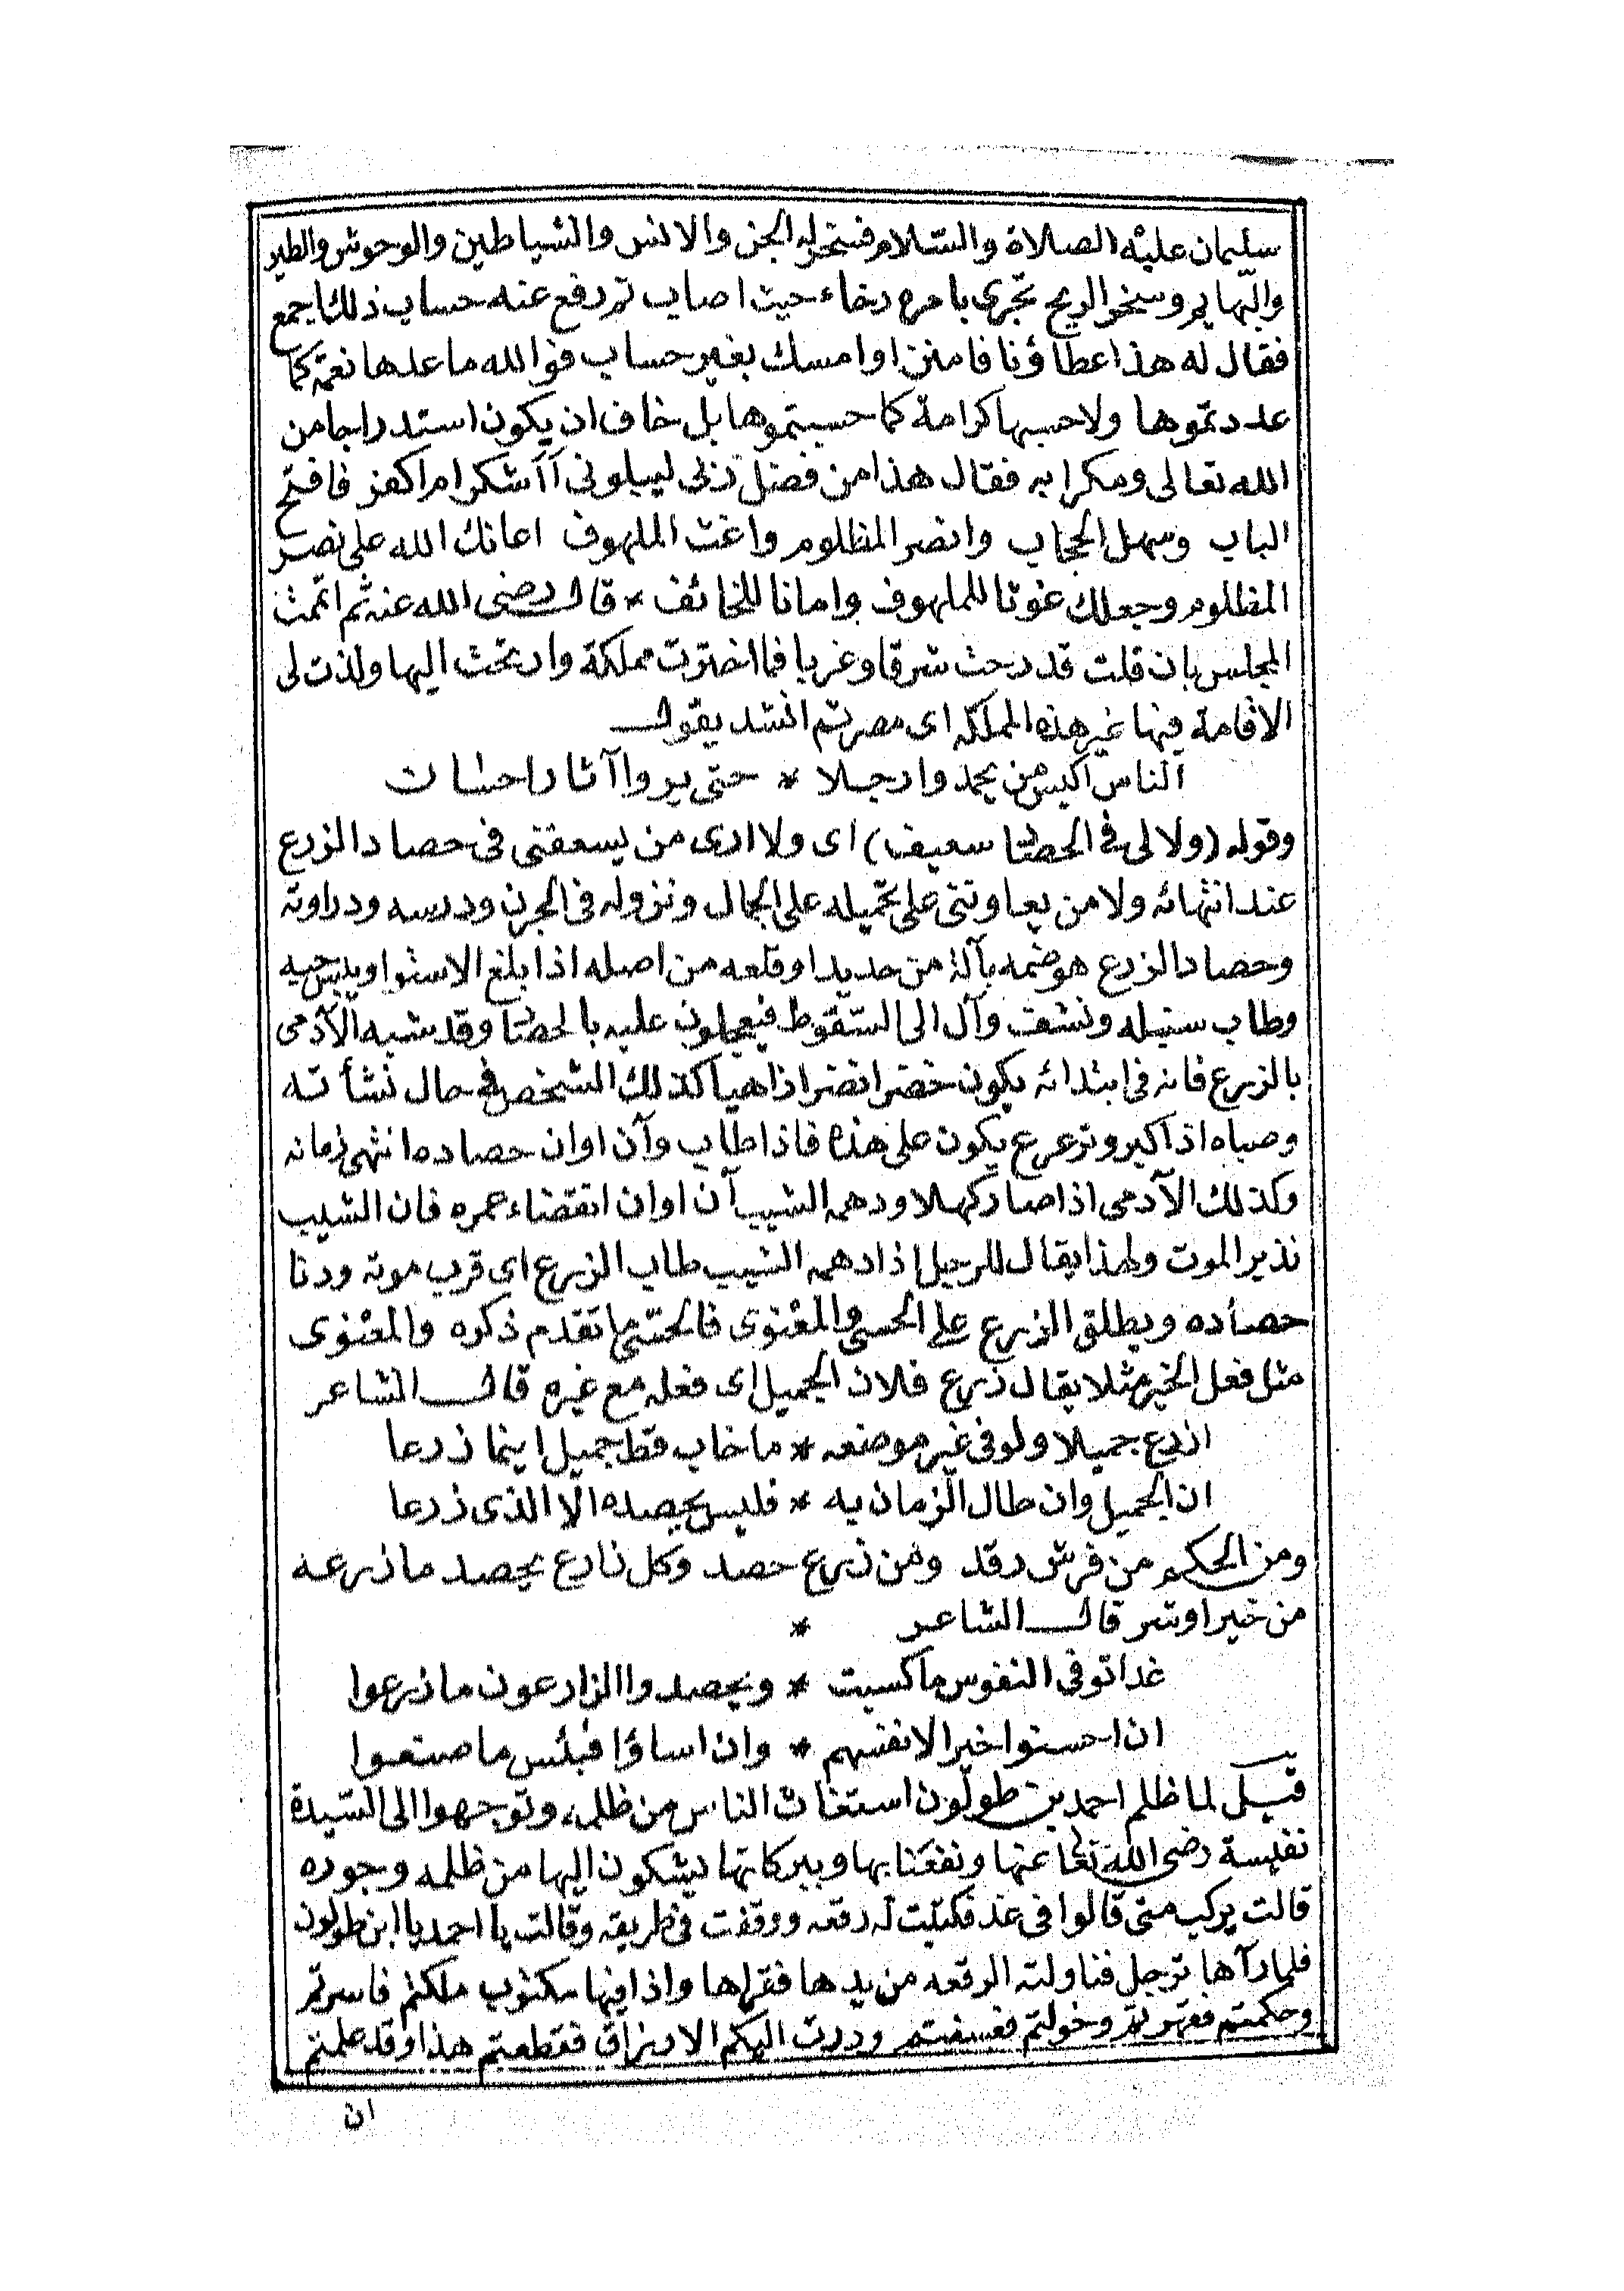 سليمان عليه الصلاة والسّلام فسخر له الجن والانس والشياطين والوحوش والطير
والبهايم وسخر الريح تجرى بامره رخاء حيث اصاب ثم رفع عنه حساب ذلك اجمع
فقال له هذا عطاؤنا فامنن او امسك بغير حساب فوالله ما عدها نعمة كما
عددتموها ولا حسبها كرامة كما حسبتموها بل خاف ان يكون استدراجا من
الله تعالى ومكرا به فقال هذا من فضل ربى ليبلونى أأشكر ام اكفر فافتح
الباب وسهل الحجاب وانصر المظلوم واغث الملهوف اعانك الله على نصر
المظلوم وجعلك غوثا للملهوف وامانا للخائف * قال رضى الله عنه ثم اتممت
المجلس بان قلت قد درحت شرقا وغربا فما اخترت مملكة وارتحت اليها ولذت لى
الاقامة فيها غير هذه المملكه اى مصر ثم انشد يقول
الناس اكيس من يحمدوا رجلا * حتى يروا آثار احسات
وقوله (ولا لى فى الحصاد سعيف) اى ولا ارى من يسعفنى فى حصاد الزرع
عند انتهائه ولا من يعاوننى على تحميله على الجمال ونزوله فى الجرن ودرسه ودراوته
وحصاد الزرع هو ضمه بآلة من حديد او قلعه من اصله اذا بلغ الاستوا ويبس حبه
وطاب سنبله ونشفت وآل الى السّقوط فيعجلون عليه بالحصاد وقد شبه الآدمى
بالزرع فانه فى ابتدائه يكون خضرا نضرا زاهيا كذلك الشخص فى حال نشأته
وصباه اذا كبر وترعرع يكون على هذه فاذا طاب وآن اوان حصاده انتهى زمانه
وكذلك الآدمى اذا صار كهلا ودهمه الشيب آن اوان انقضاء عمره فان الشيب
نذير الموت ولهذا يقال للرجل اذا دهمه الشيب طاب الزرع اى قرب موته ودنا
حصاده ويطلق الزرع على الحسى والمعنوى فالحسّى ما تقدم ذكره والمعنوى
مثل فعل الخير مثلا يقال زرع فلان الجميل اى فعله مع غيره قال الشاعر
ازرع جميلا ولو فى غير موضعه * ما خاب قط جميل اينما زرعا
ان الجميل وان طال الزمان به * فليس يحصده الا الذى زرعا
ومن الحكم من فرش رقد ومن زرع حصد وكل زارع يحصد ما زرعه
من خير او شر قال الشاعر *
غدا توفى النفوس ما كسبت * ويحصدوا الزارعون ما زرعوا
ان احسنوا خيرا لانفسهم * وان اساؤا فبئس ما صنعوا
قيل لما ظلم احمد بن طولون استغاث الناس من ظلمه وتوجهوا الى السّيدة
نفيسة رضى الله تعالى عنها ونفعنا بها وببركاتها يشكون اليها من ظلمه وجوره
قالت يركب متى قالوا فى غد فكتبت له رقعه ووقفت فى طريقه وقالت يا احمد يا ابن طولون
فلما رآها ترجل فناولته الرقعه من يدها فقراها واذا فيها مكتوب ملكتم فاسرتم
وحكمتم فقهرتم وخولتم فعسفتم ودرت اليكم الارزاق فقطعتم هذا وقد علمتم
ان